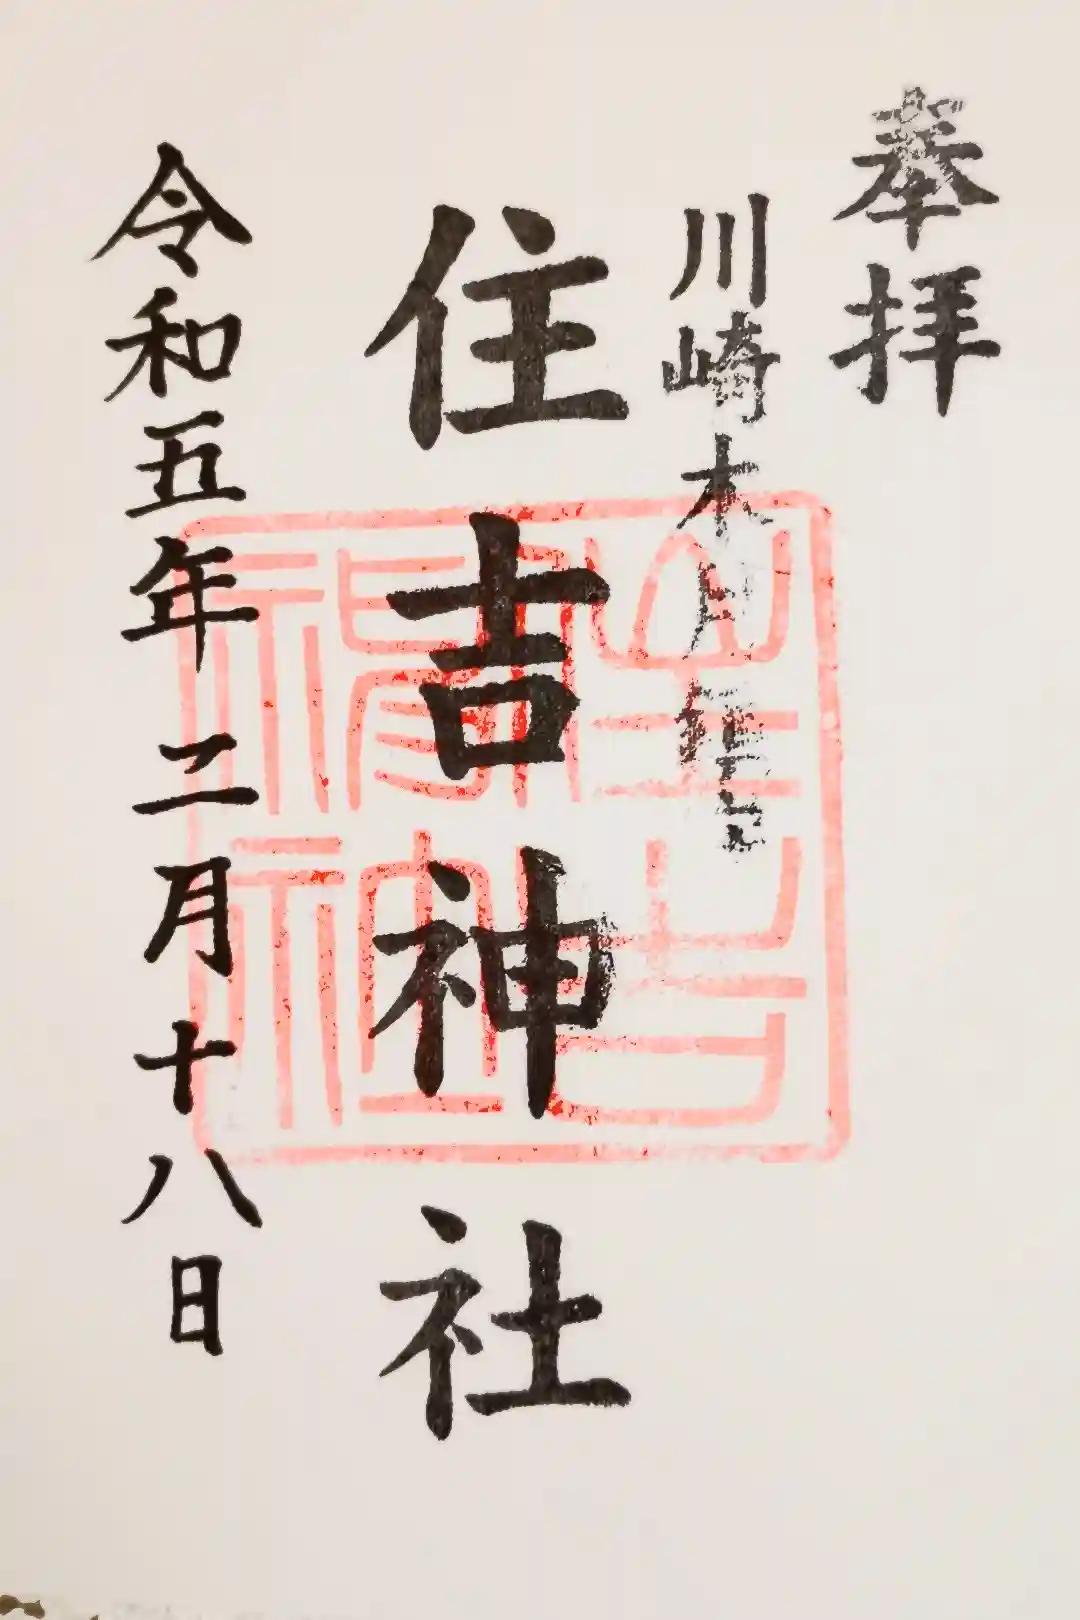 奉拝
川崎木月鎮座
住吉神社
令和五年二月十八日